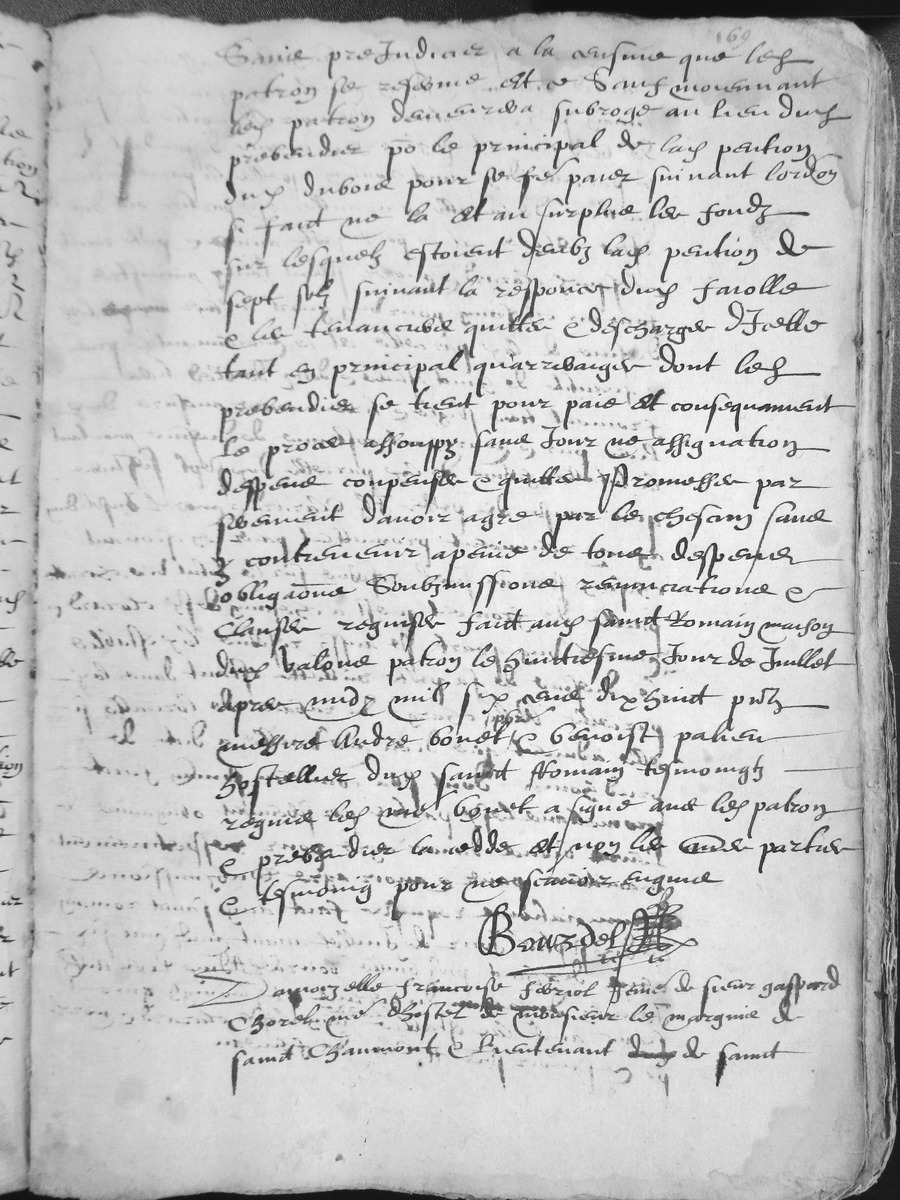 169
Sans preJudicier a la censive que led
patron se reserve et ce Sauf moienant
led patron demeurera subrogé au lieu dud
prebendier po le principal de lad pention
dud dubois pour se fe paier suivant lordon
si faict ne la et au surplus les fondz
sur lesquelz estoient deubz lad pention de
sept solz suivant la responce dud farolle
& les tenanciers quittes & descharges dJcelle
tant en principal qu'arreraiges dont led
prebendier se tient pour paie et consequament
le proces assouppy sans Jour ne assignation
despens compenses & quittes Promesses par
serement davoir agre par les chascun sans
y contrevenir a peine de tous despens
obligaons Soubzmissions renunciations &
Clauses requises faict aud sainct Romain maison
dud valous patron le huictiesme Jour de Juillet
apres midy mil six cens dix huict pntz
messire Andre bonet pbre & benoist palieu
hostellier dud sainct Romain tesmoingtz
requis led mre bonet a signe avec led patron
& prebendier la cedde et non les aues parties
& tesmoing pour ne scavoir enquis
Bourdel
Damoizelle francoise feriol feme de sieur gaspard
Chorel me dhostel de monsieur le marquis de
sainct Chaumont & Lieutenant de sainct